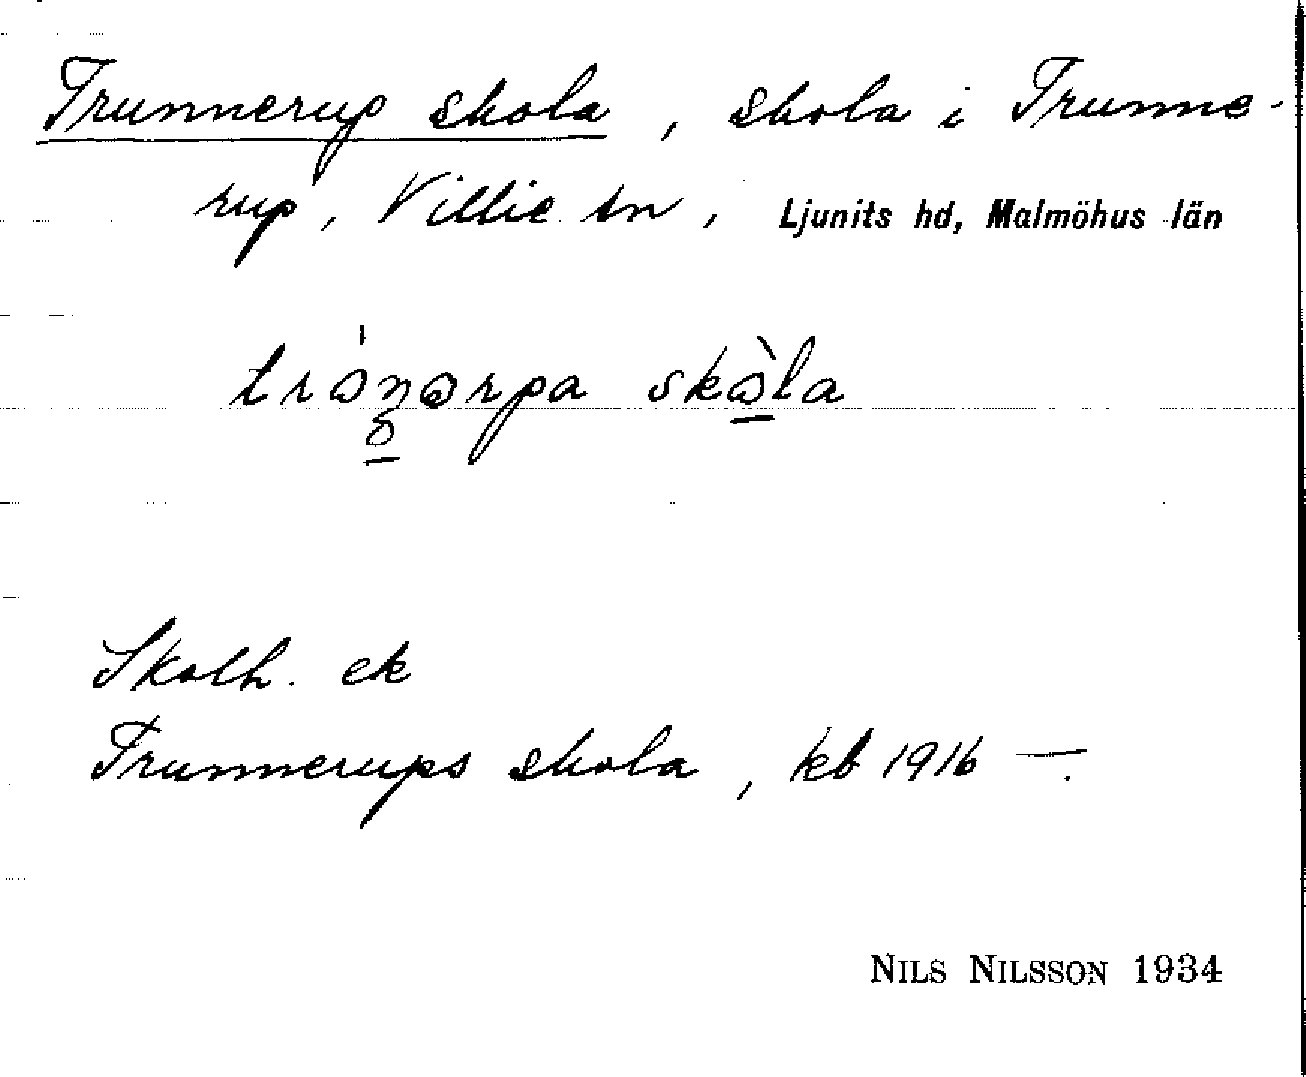 Trunnerup skola, skola i Trunne-
rup, Villie sn, Ljunits hd, Malmöhus län
skola
Skolh. ek
Trunnerups skola, kb 1916 —.
NILS NILSSON 1934